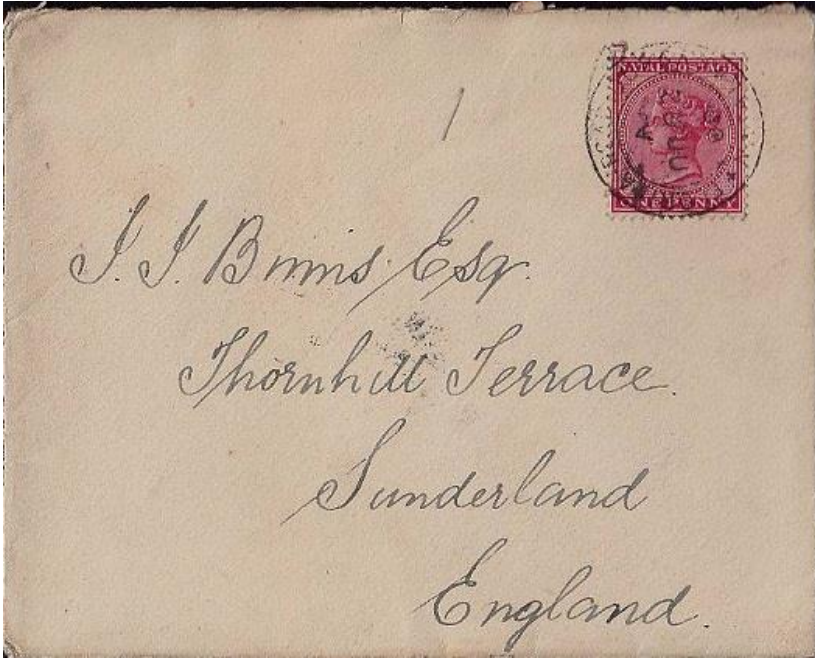 NATAL POSTAGE
ONE PENNY
1
J. J. Binns. Esq.
Thornhill Terrace.
Sunderland
England.